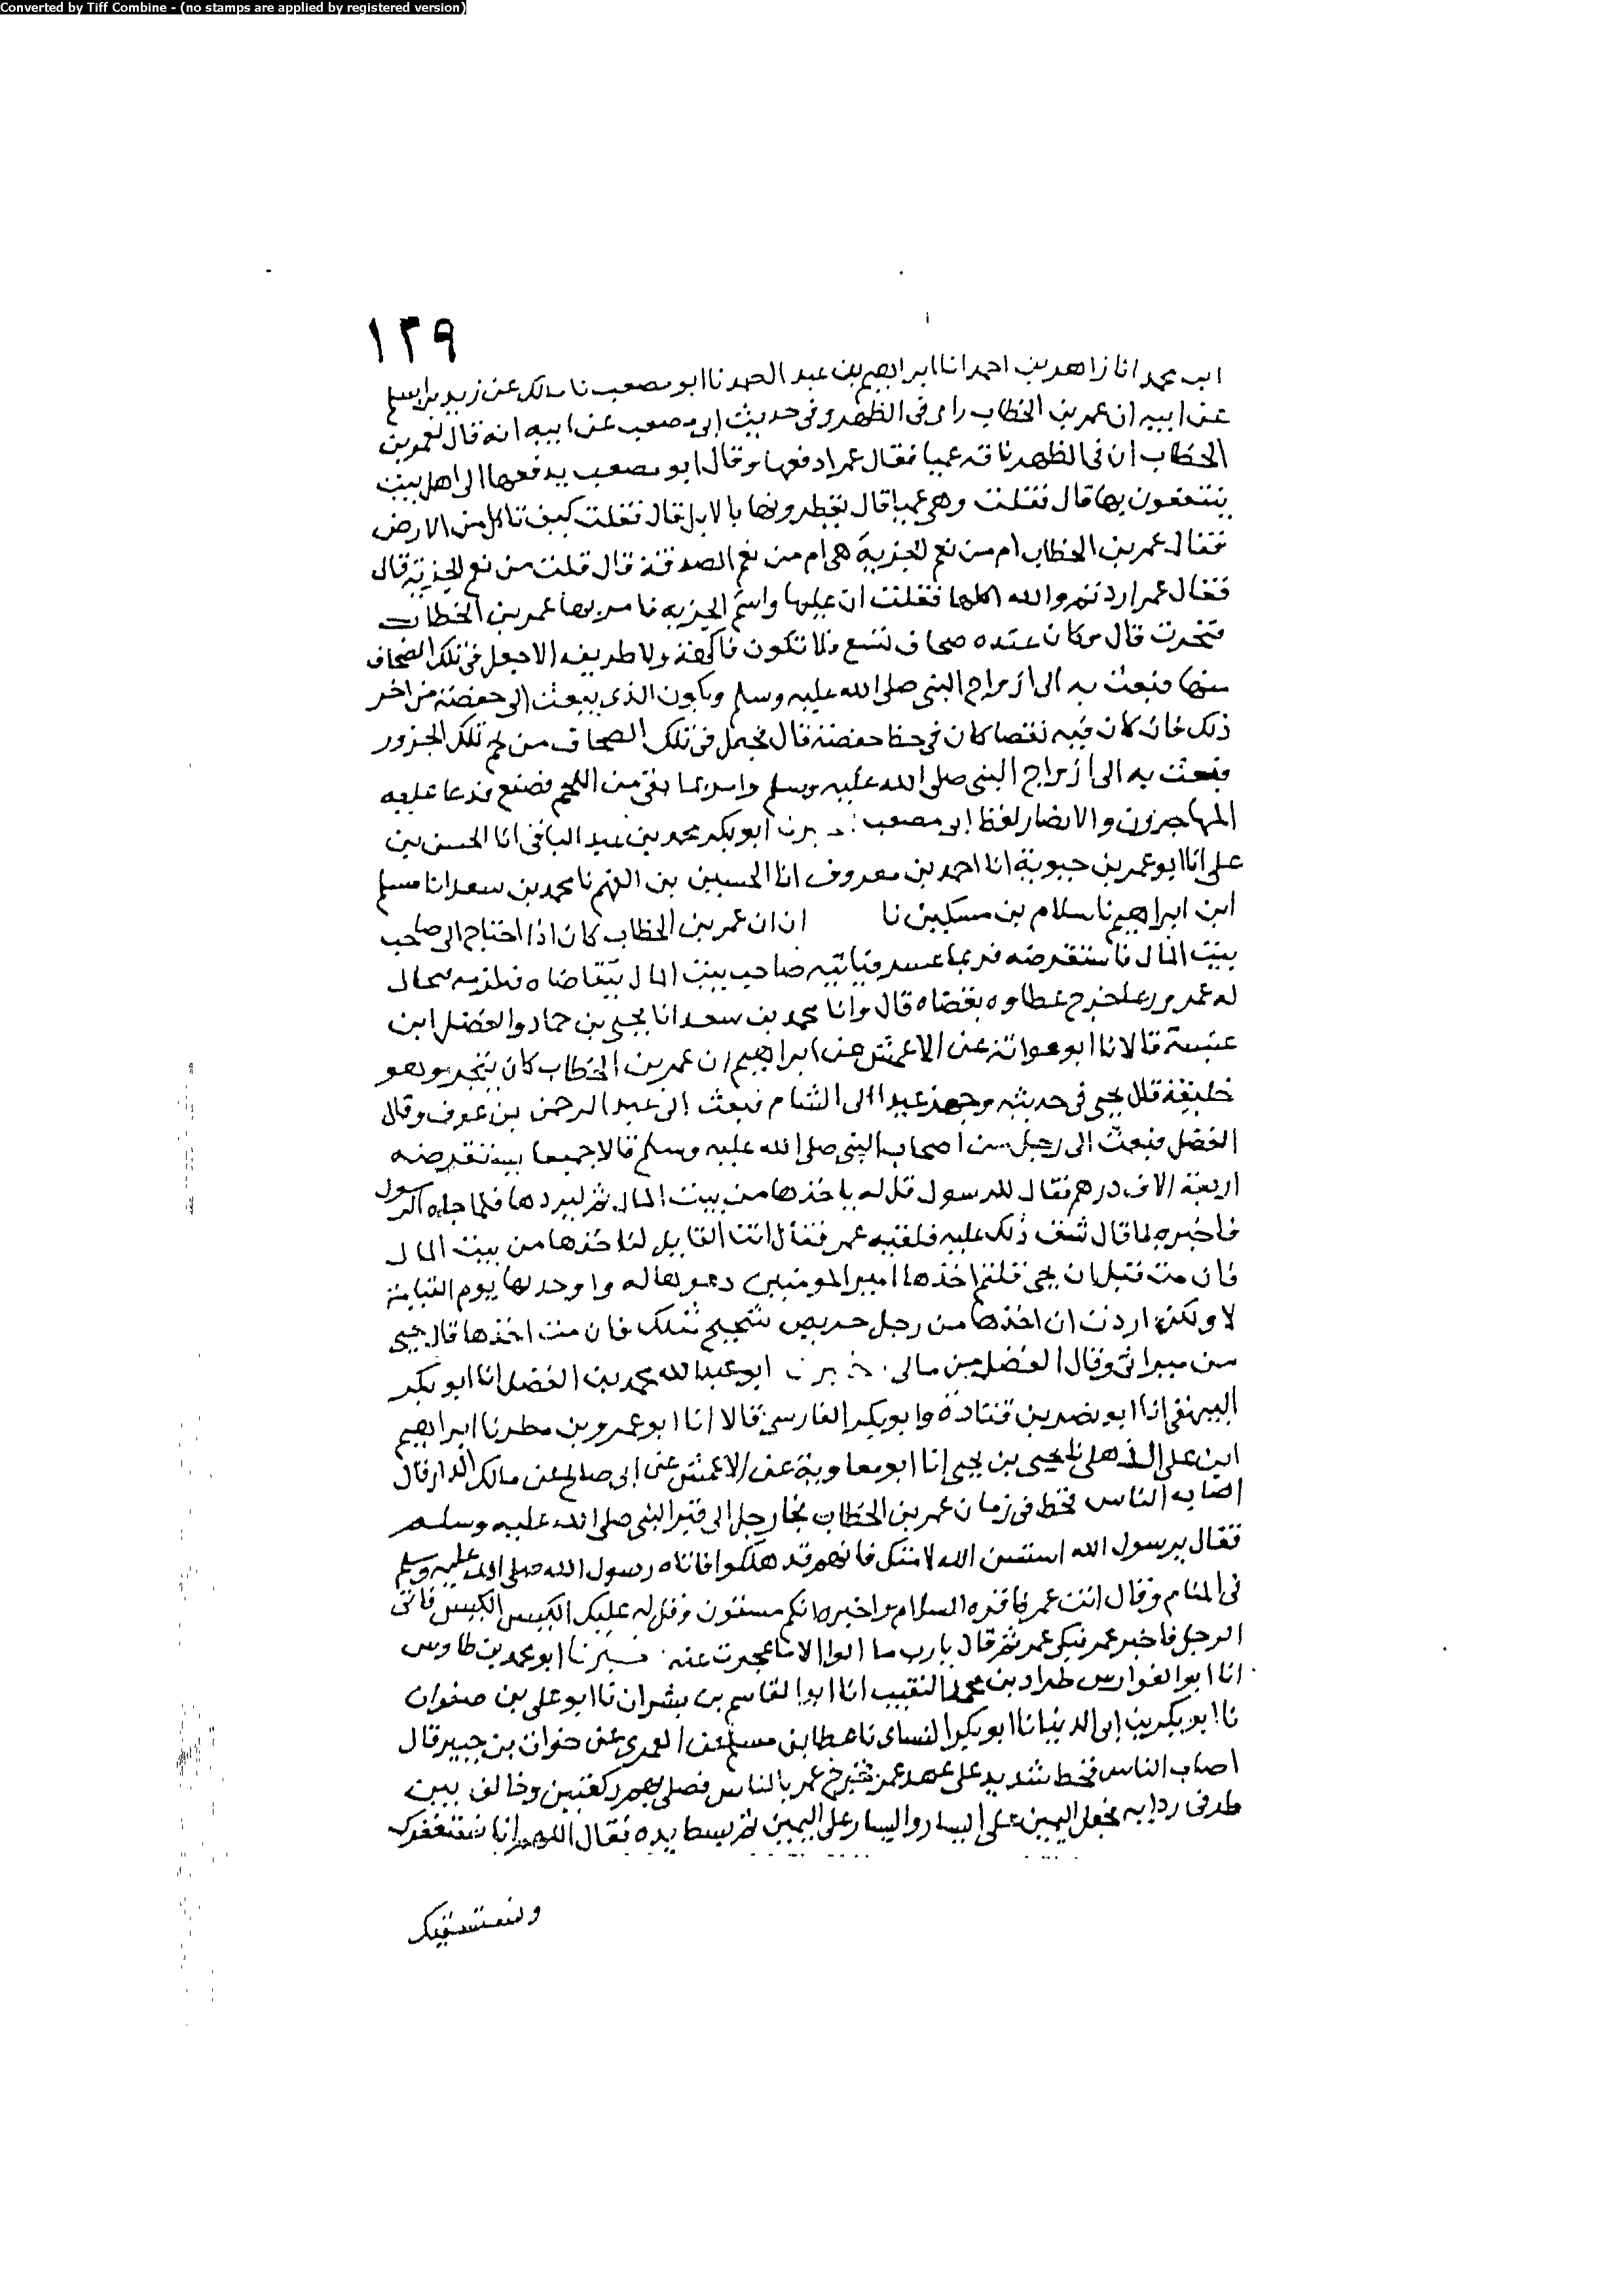 Converted by Tiff Combine - (no stamps are applied by registered version)
١٢٩
ابن محمد انا زاهد بن احمد انا ابراهيم بن عبد الصمد نا ابو مصعب نا مالك عن زيد بن اسلم
عن ابيه ان عمر بن الخطاب راى فى الظهر وفى حديث ابى مصعب عن ابيه انه قال لعمر بن
الخطاب ان فى الظهر ناقه عميا فقال عمر ادفعها وقال ابو مصعب يدفعها الى اهل بيت
ينتفعون بها قال فقلت وهى عميا قال يقطرونها بالابل قال فقلت كيف تاكل من الارض
فقال عمر بن الخطاب ام من نعم الجزية هى ام من نعم الصدقة قال قلت من نعم الجزية قال
فقال عمر اردتم والله اكلها فقلت ان عليها واسم الجزيه فامر بها عمر بن الخطاب
فنحرت قال وكان عنده صحاف تسع فلا تكون فاكهة ولا طريفه الا جعل فى تلك الصحاف
منها فبعث به الى ازواج النبى صلى الله عليه وسلم ويكون الذى يبعث الى حفصة من اخر
ذلك فان كان فيه نقصا كان فى حظ حفصة قال فجعل فى تلك الصحاف من لحم تلك الجزور
فبعث به الى ازواج النبى صلى الله عليه وسلم وامر بما بقى من اللحم فصنع فدعا عليه
المهاجرون والانصار لفظ ابى مصعب ابو بكر محمد بن عبد الباقى انا الحسن بن
على انا ابو عمر بن حيوية انا احمد بن معروف انا الحسين بن الفهم نا محمد بن سعد انا مسلم
ابن ابراهيم نا سلام بن مسكين نا ان عمر بن الخطاب كان اذا احتاج الى صاحب
بيت المال فاستقرضه فربما عسر فياتيه صاحب بيت المال يتقاضاه فيلزمه
له عمر وربما خرج عطاوه فقضاه قال وانا محمد بن سعد انا يحيى بن حماد والفضل ابن
عنبسة قالا نا ابو عوانة عن الاعمش عن ابراهيم ان عمر بن الخطاب كان يتجر وهو
خليفة قال يحيى فى حديثه وجهز عيرا الى الشام فبعث الى عبد الرحمن بن عوف وقال
الفضل فبعث الى رجل من اصحاب النبى صلى الله عليه وسلم قالا جميعا يستقرضه
اربعة الاف درهم فقال للرسول قل له ياخذها من بيت المال ثم ليردها فلما جاه الرسول
فاخبره بما قال شق ذلك عليه فلقيه عمر فقال انت القايل لياخذها من بيت المال
فان مت قبل ان يجى قلتم اخذها امير المومنين دعوها له واوخذ بها يوم القيامة
لا ولكن اردت ان اخذها من رجل حريص شحيح مثلك فان مت اخذها قال يحيى
من ميراثى وقال الفضل من مالى ابو عبد الله محمد بن الفضل انا ابو بكر
البيهقى انا ابو نصر بن قتادة وابو بكر الفارسى قالا انا ابو عمرو بن مطر نا ابراهيم
ابن على الذهلى نا يحيى بن يحيى انا ابو معاوية عن الاعمش عن ابى صالح عن مالك الدار قال
اصابه الناس قحط فى زمان عمر بن الخطاب فجا رجل الى قبر النبى صلى الله عليه وسلم
فقال يرسول الله استسق الله لامتك فانهم قد هلكوا فاتاه رسول الله صلى الله عليه وسلم
فى المنام وقال ائت عمر فاقره السلام واخبره انكم مسقون وقل له عليك الكيس الكيس فاتى
الرجل فاخبر عمر فبكى عمر ثم قال يا رب ما الوا الا ما عجزت عنه ابو محمد بن طاوس
انا ابو الفوارس طراد بن محمد النقيب انا ابو القاسم بن بشران نا ابو على بن صفوان
نا ابو بكر بن ابى الدنيا نا ابو بكر النساى نا عطا بن مسلم عن العمرى عن خوات بن جبير قال
اصاب الناس قحط شديد على عهد عمر فخرج عمر بالناس فصلى بهم ركعتين وخالف بين
طرفى ردايه فجعل اليمين على اليسار واليسار على اليمين ثم بسط يده فقال اللهم انا نستغفرك
ونستسقيك